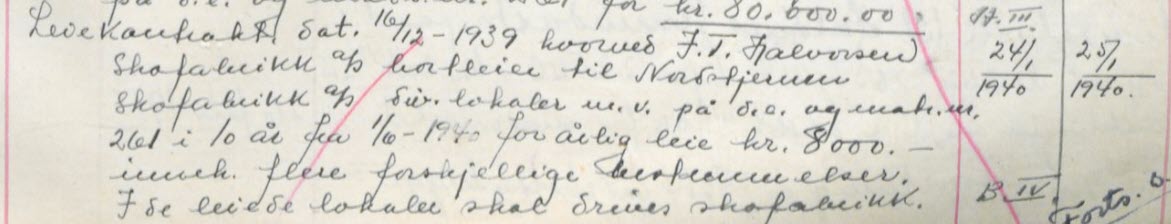 på d.e. og matr.nr. 261 for kr. 80.000.00.
Leiekontrakt dat. 16/12-1939 hvorved J.T. Halvorsen
Skofabrikk a/s bortleier til Nordstjernen
Skofabrikk a/s div. lokaler m.v. på d.e. og matr.nr.
261 i 10 år fra 1/6-1940 for årlig leie kr. 8000.-
inneh. flere forskjellige bestemmelser.
I de leiede lokaler skal drives skofabrikk.
A. III.
24/1 1940
25/1 1940.
B. IV
Forts.